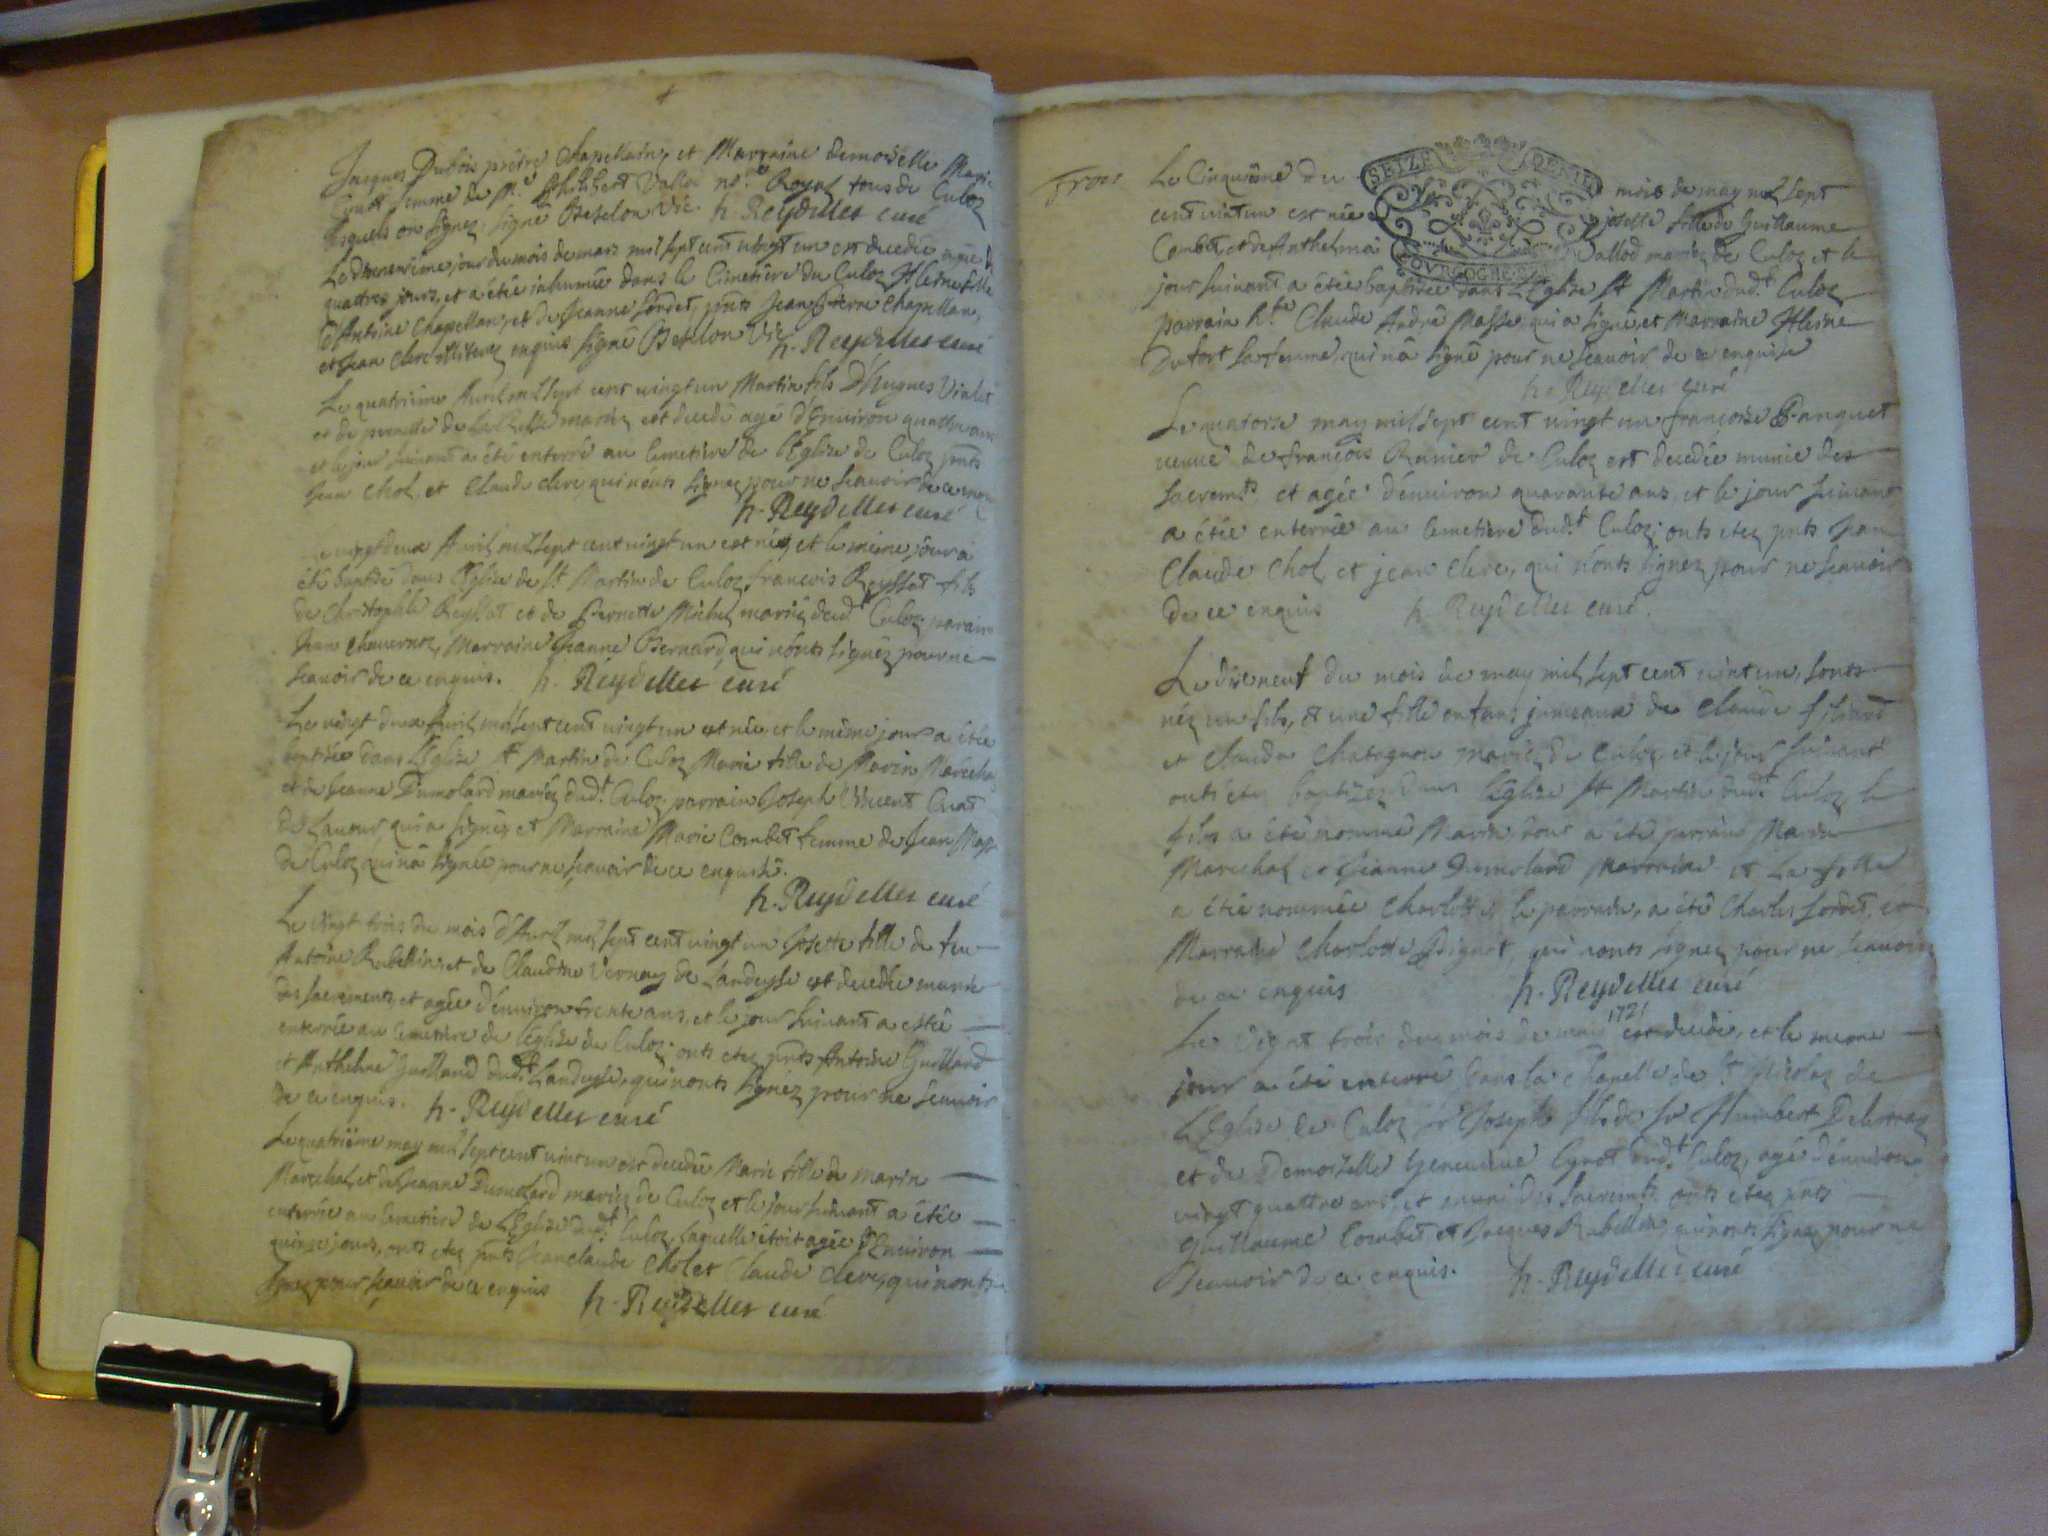 Jacques Dubois prêtre Chapellain, et Marraine demoiselle Marie
femme de Philibert Vallod Royal tous de Culoz
lesquels on signez, signé Betelon Vic. h. Reydellet curé
jour du mois de mars mil sept cent vingt un est decedée agée de
quattres jours, et a étée inhumée dans le Cimetière du Culoz fille
d'Antoine Chapellan, et de Jeanne Sordet, pnts Jean Pierre Chapellan,
et Jean Clerc enquis signé Betelon Vic.
h. Reydellet curé
Le quatrième Avril mil sept cent vingt un Martin fils D'hugues Vialet
et de pernette de mariez est decedé agé d'Environ quattre ans
et le jour suivant a été enterré au Cemetiere de l'Eglise de Culoz pnts
Jean Chol, et Claude clerc qui nonts signez pour ne scavoir de ce
h. Reydellet curé
vingt deux Avril mil sept cent vingt un est néz et le même jour a
été baptisé dans l'Eglise de St Martin de Culoz francois Reyssat fils
de Christophle Reyssat et de Pernette Michel mariéz dud.t Culoz, parain
Jean Marraine Jeanne Bernard qui nonts signéz pour ne
scavoir de ce enquis. h. Reydellet curé
Le vingt deux Avril mil sept cent vingt un est née et le même jour a étée
baptisée dans l'Eglise St Martin de Culoz Marie fille de Marin Marechal
et de Jeanne Dumolard mariéz dud.t Culoz, parrain Joseph Vincent
de Lavour qui a signéz et Marraine Marie Combet femme de Jean
de Culoz qui na signée pour ne scavoir de ce enquise.
h. Reydellet curé
Le vingt trois du mois d'Avril mil sept cent vingt un Josette fille de feu
Antoine Rubellin, et de Claudine Vernay de Landeysse est decedée munie
des sacrements, et agée d'environ trente ans, et le jour suivant a estée
enterrée au Cemetiere de l'Eglise de Culoz, onts etez pnts Antoine Guilland
et Anthelme Guilland dud.t Landeysse, qui nonts signéz pour ne scavoir
de ce enquis. h. Reydellet curé
Le quatrième may mil sept cent vint un est decedée Marie fille de marin
Marechal, et de Jeanne Dumolard mariez de Culoz et le jour suivant a étée
enterrée au Cemetiere de l'Eglise dud.t Culoz, laquelle étoit agée d'Environ
quinse jours, onts etez pnts Jean claude Chol et Claude clerc, qui nonts
signez pour scavoir de ce enquis h. Reydellet curé
Trois
SEIZE DENIE
BOVRGOGNE
Le Cinquième du mois de may mil sept
cent vint un est née josette fille de Guillaume
Combet, et de Anthelma Vallod mariéz de Culoz et le
jour suivant a étée baptisée dans l'Eglise St Martin dud.t Culoz
parrain Claude André Masse, qui a signé, et Marraine
Dufort sa femme, qui na signé pour ne scavoir de ce enquise
h. Reydellet curé
Le quatorse may mil sept cent vingt un françoise
veuve de françois Ranier de Culoz est decedée munie des
sacremts et agée d'environ quarante ans, et le jour suivant
a étée enterrée au Cemetiere dud.t Culoz, onts etez pnts Jean
Claude Chol, et jean clerc, qui nonts signez pour ne scavoir
de ce enquis h. Reydellet curé.
Le diz neuf du mois de may mil sept cent vint un, sonts
néz un fils, et une fille enfans jumeaux de Claude
et Claude Chatagnon mariéz de Culoz, et le jour suivant
onts etez baptizez dans l'Eglise St Martin dud.t Culoz, le
fils a été nommé Marin dont a été parrain Marin
Marechal et Jeanne Dumolard Marraine et La fille
a étée nommée Charlotte, le parrain, a été Charles Sordet, et
Marraine Charlotte qui nonts signez pour ne scavoir
de ce enquis h. Reydellet curé
Le Vignt trois du mois de may 1721 est decedé, et le meme
jour a été enterré dans la chapelle de St Nicolas de
L'Eglise de Culoz sr Joseph fils de sr Humbert
et de Demoiselle Genevieve dud.t Culoz, agé d'environ
vingt quattre ans, et muni des Sacremts. onts etez pnts
Guillaume Combet, et Jacques Rubellin, qui nonts signez pour ne
scavoir de ce enquis. h. Reydellet curé